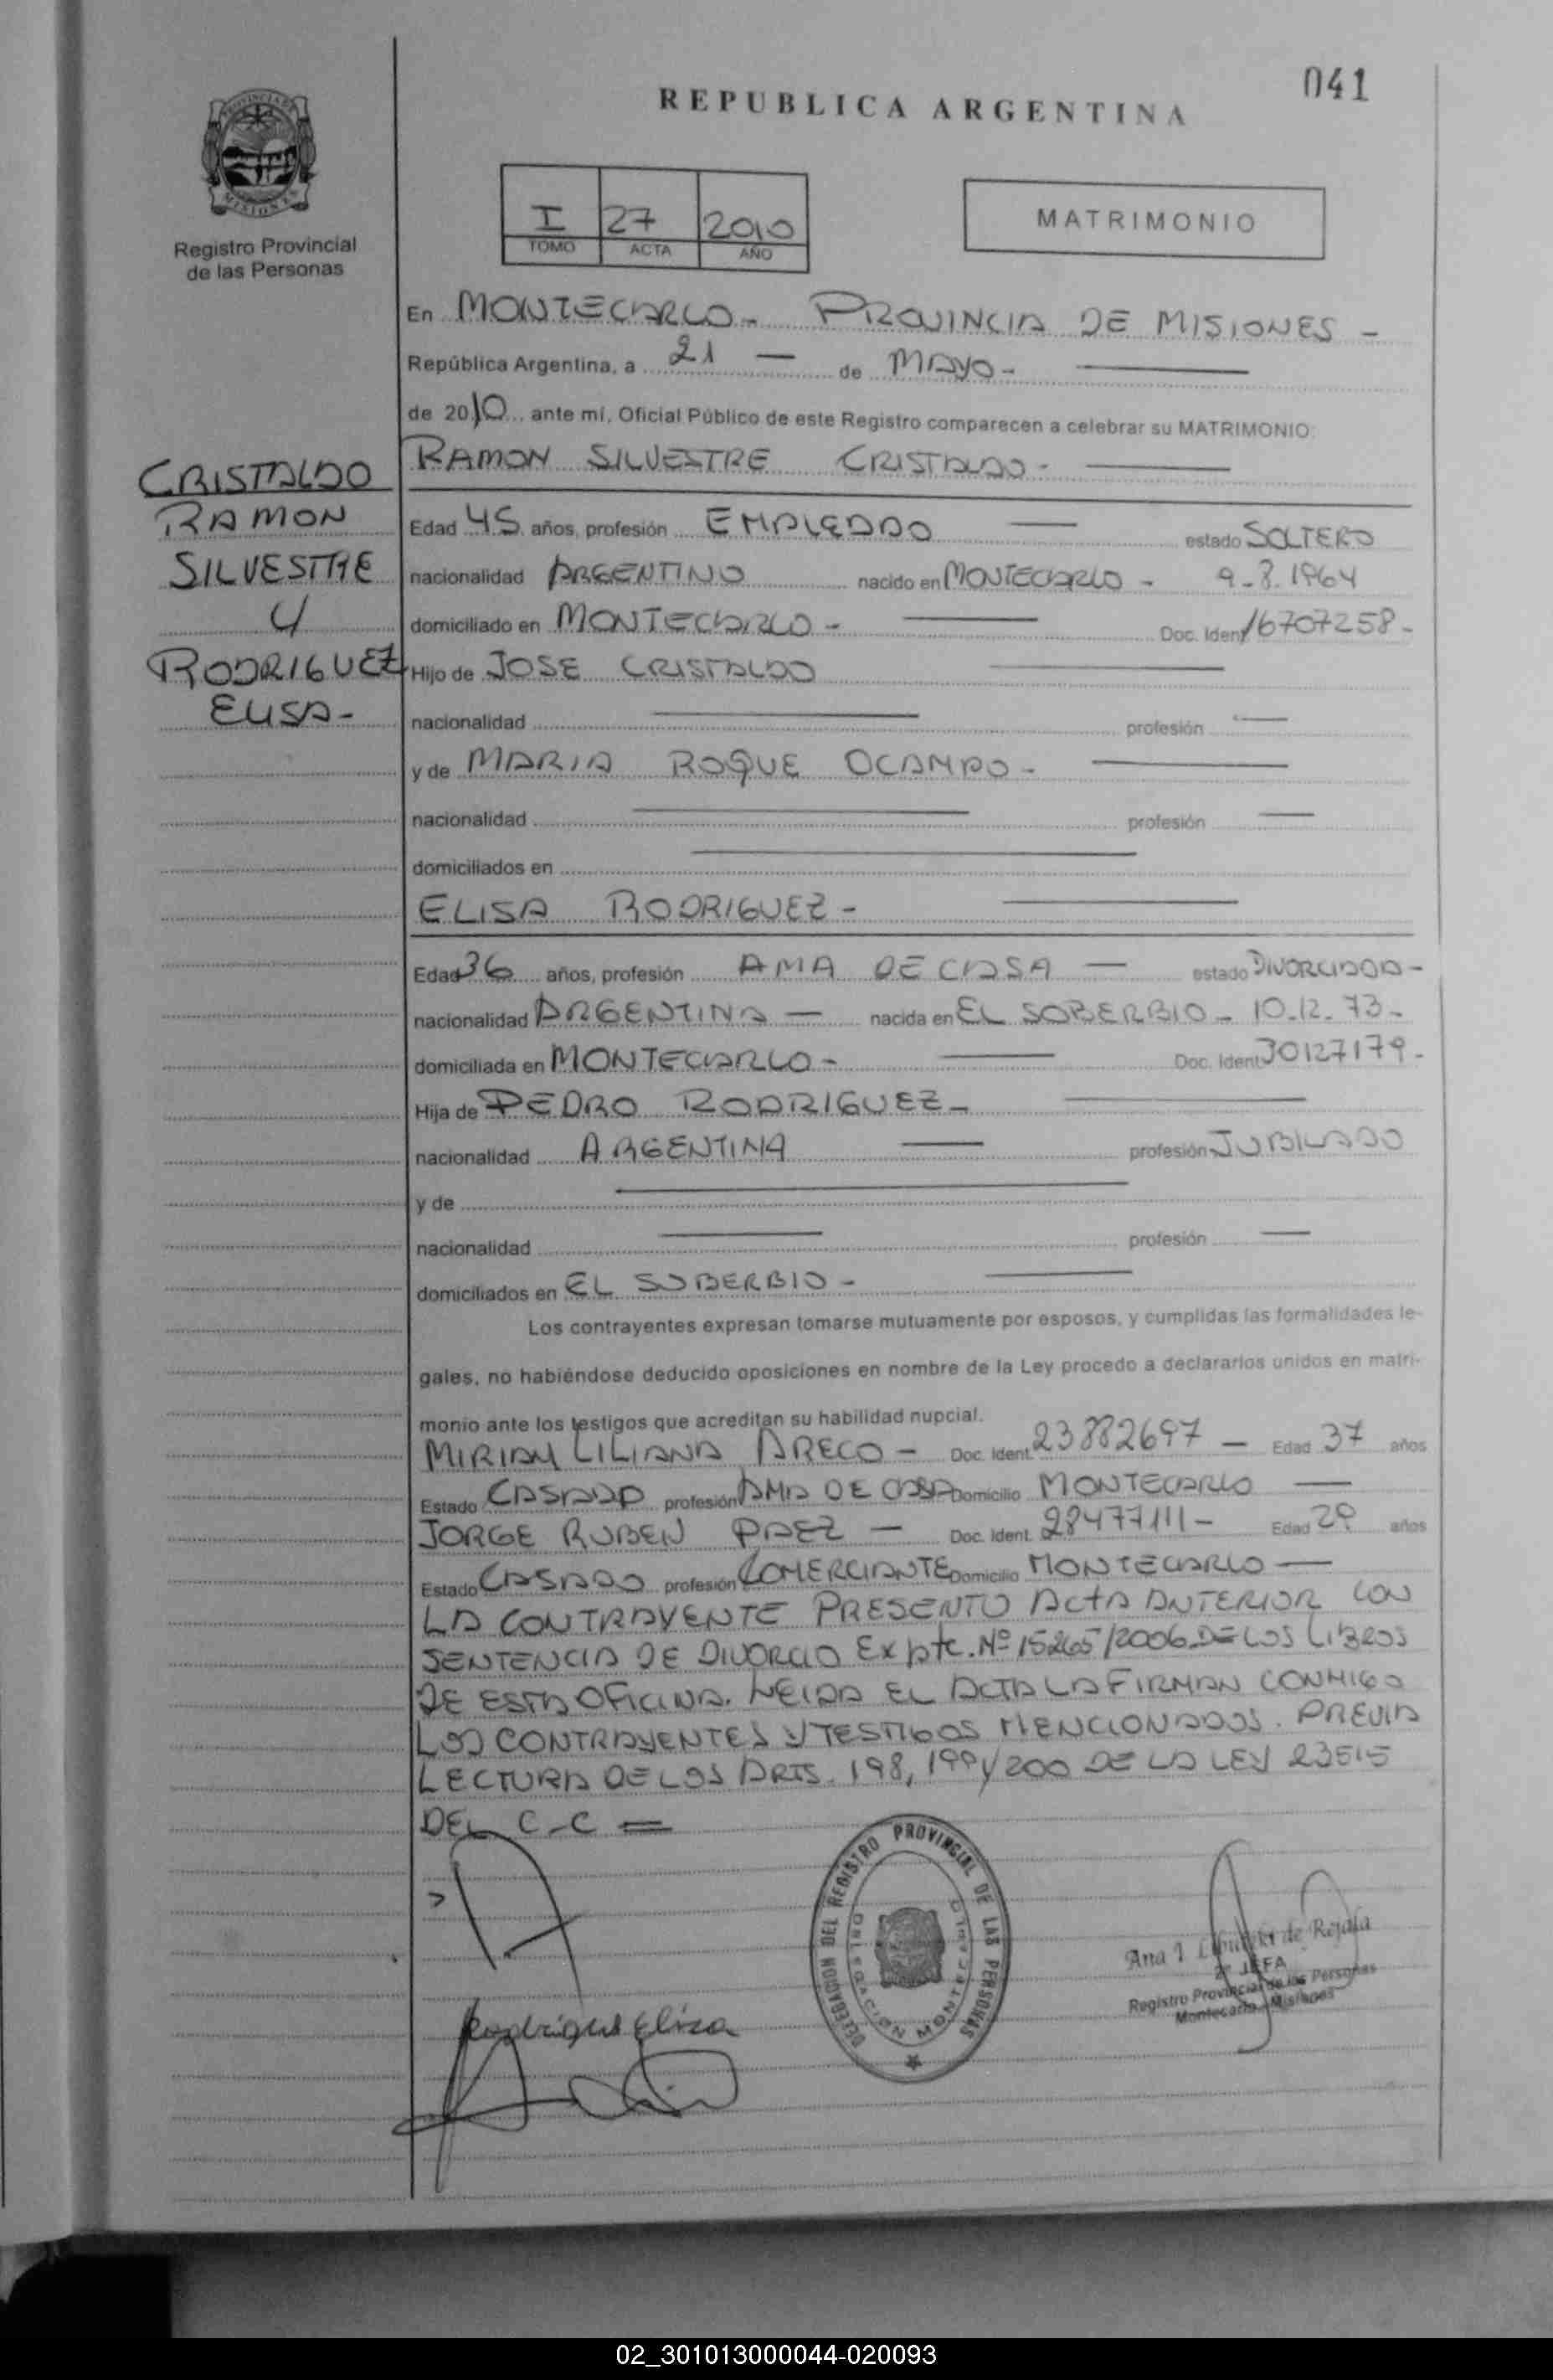 041
REPUBLICA ARGENTINA
PROVINCIA DE
MISIONES
Registro Provincial
de las Personas
I 27 2010
TOMO ACTA AÑO
MATRIMONIO
En MONTECARLO - PROVINCIA DE MISIONES -
República Argentina, a 21 — de MAYO -
de 2010 ante mí, Oficial Público de este Registro comparecen a celebrar su MATRIMONIO:
RAMON SILVESTRE CRISTALDO -
CRISTALDO
RAMON
SILVESTRE
Y
RODRIGUEZ
ELISA -
Edad 45 años, profesión EMPLEADO — estado SOLTERO
nacionalidad ARGENTINO nacido en MONTECARLO - 9-8-1964
domiciliado en MONTECARLO - Doc. Ident 16707258 -
Hijo de JOSE CRISTALDO
nacionalidad — profesión —
y de MARIA ROQUE OCAMPO -
nacionalidad — profesión —
domiciliados en —
ELISA RODRIGUEZ -
Edad 36 años, profesión AMA DE CASA — estado DIVORCIADA -
nacionalidad ARGENTINA — nacida en EL SOBERBIO - 10-12-73 -
domiciliada en MONTECARLO - Doc. Ident 30127179 -
Hija de PEDRO RODRIGUEZ -
nacionalidad ARGENTINA — profesión JUBILADO
y de —
nacionalidad — profesión —
domiciliados en EL SOBERBIO -
Los contrayentes expresan tomarse mutuamente por esposos, y cumplidas las formalidades le-
gales, no habiéndose deducido oposiciones en nombre de la Ley procedo a declararlos unidos en matri-
monio ante los testigos que acreditan su habilidad nupcial.
MIRIAM LILIANA ARECO - Doc. Ident. 23882697 — Edad 37 años
Estado CASADA profesión AMA DE CASA Domicilio MONTECARLO —
JORGE RUBEN PAEZ — Doc. Ident. 28477111 - Edad 29 años
Estado CASADO profesión COMERCIANTE Domicilio MONTECARLO —
LA CONTRAYENTE PRESENTO ACTA ANTERIOR CON
SENTENCIA DE DIVORCIO Expte. Nº 15265/2006 DE LOS LIBROS
DE ESTA OFICINA. LEIDA EL ACTA LA FIRMAN CONMIGO
LOS CONTRAYENTES Y TESTIGOS MENCIONADOS. PREVIA
LECTURA DE LOS ARTS. 198, 199 y 200 DE LA LEY 23515
DEL C-C =
DELEGACION DEL REGISTRO PROVINCIAL DE LAS PERSONAS
DELEGACION MONTECARLO
Ana I. de Rejala
2º JEFA
Registro Provincial de las Personas
Montecarlo - Misiones
Rodrigues Elisa
02_301013000044-020093